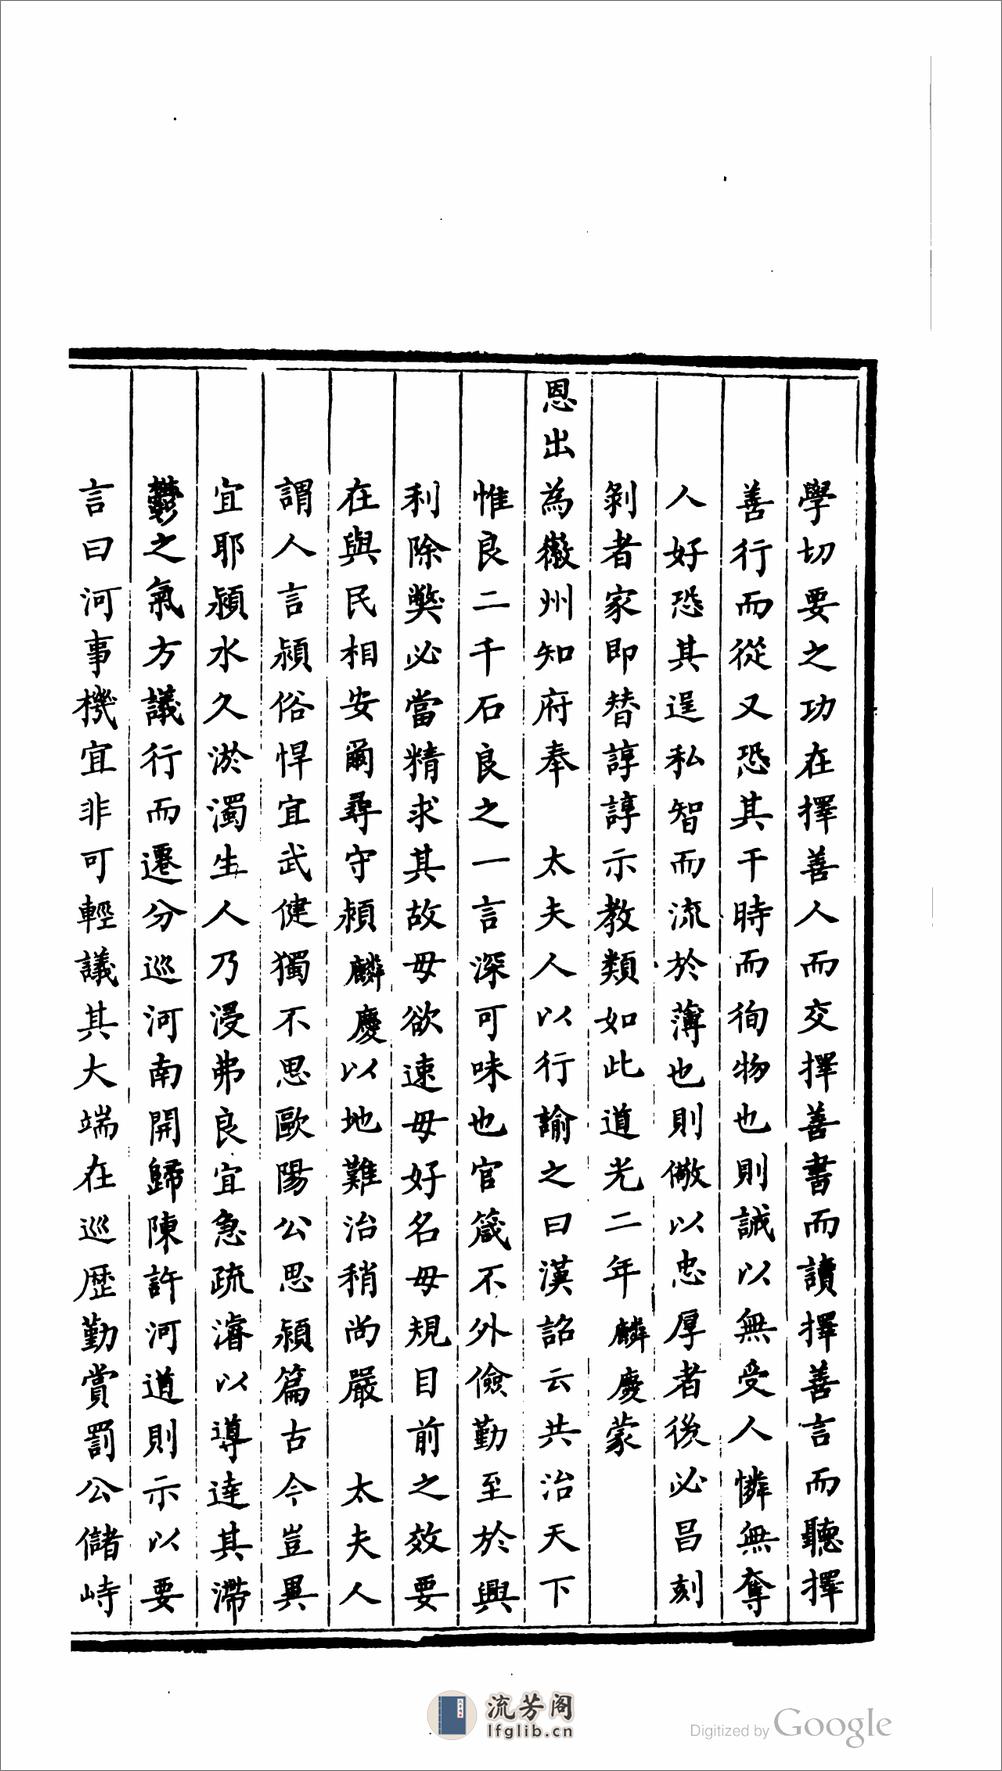 學切要之功在擇善人而交擇善書而讀擇善言而聽擇
善行而從又恐其干時而徇物也則誡以無受人憐無奪
人好恐其逞私智而流於薄也則儆以忠厚者後必昌刻
剝者家即替諄諄示教類如此道光二年麟慶蒙
恩出為徽州知府奉　太夫人以行諭之曰漢詔云共治天下
惟良二千石良之一言深可味也官箴不外儉勤至於興
利除獘必當精求其故毋欲速毋好名毋規目前之效要
在與民相安爾尋守潁麟慶以地難治稍尚嚴　太夫人
謂人言潁俗悍宜武健獨不思歐陽公思潁篇古今豈異
宜耶潁水久淤濁生人乃浸弗良宜急疏濬以導達其滯
鬱之氣方議行而遷分巡河南開歸陳許河道則示以要
言曰河事機宜非可輕議其大端在巡歷勤賞罰公儲峙
流芳阁
lfglib.cn
Digitized by Google